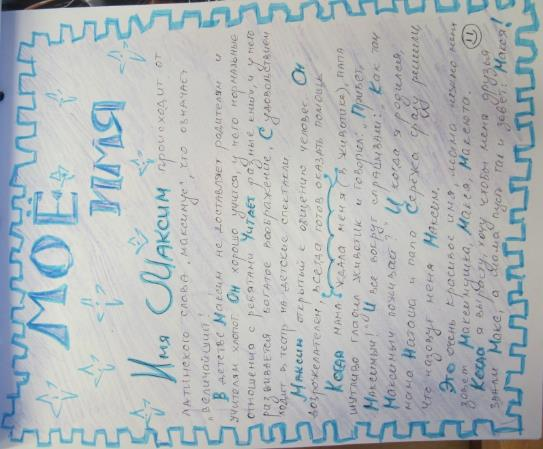 МОЁ
ИМЯ
Имя Максим происходит от
латинского слова „максимус", что означает
„величайший".
В детстве Максим не доставляет родителям и
учителям хлопот. Он хорошо учится, у него нормальные
отношения с ребятами. Читает разные книги, и у него
развивается богатое воображение. С удовольствием
ходит в театр на детские спектакли.
Максим открытый к общению человек. Он
доброжелателен, всегда готов оказать помощь.
Когда мама ждала меня (в животике), папа
шутливо гладил животик и говорил: Привет,
Максимыч! И все вокруг спрашивали: Как там
Максимыч поживает? И когда я родился,
мама и папа Серёжа сразу решили,
что назовут меня Максим.
Это очень красивое имя, мама нежно меня
зовёт Максимушка, Макся, Максюта.
Когда я вырасту, хочу чтобы меня друзья
звали Макс, а мама пусть так и зовёт: Макся!